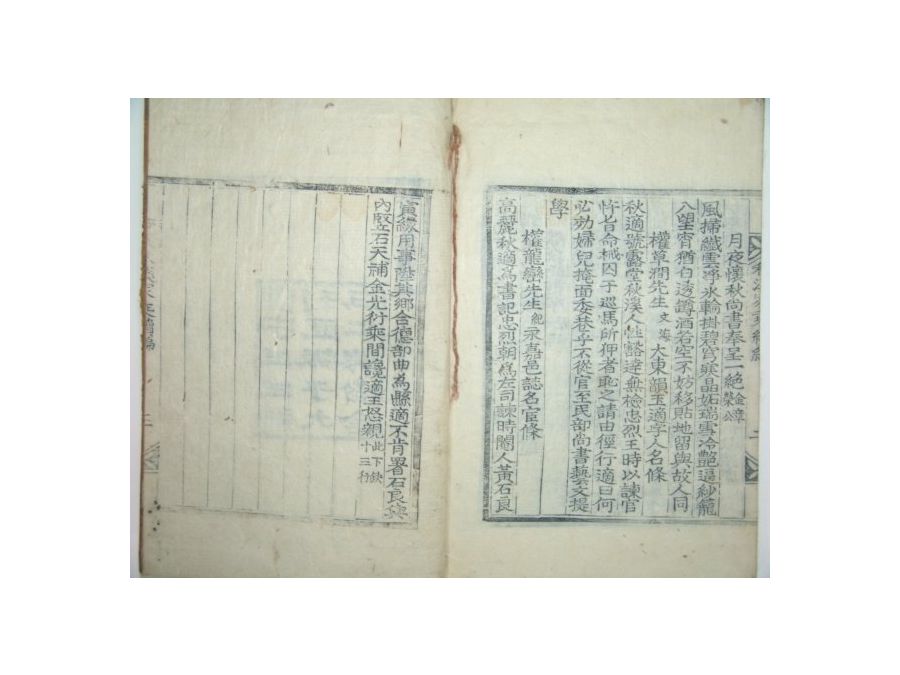 月夜懷秋尚書奉呈一絕 金台公
風掃纖雲淨氷輪掛碧穹寒晶妬瑞雪冷艶逼紗籠
入望宵猶白透鐏酒若空不妨移貼地留與故人同
權草澗先生 文海 大東韻玉適字人名條
秋適號露堂秋溪人性豁達無檢忠烈王時以諫官
忤旨命械囚于巡馬所押者恥之請由徑行適曰何
必効婦兒掩面委巷乎不從官至民部尚書藝文提
學
權龍巒先生 紀 永嘉邑誌名宦條
高麗秋適爲書記忠烈朝爲左司諫時閹人黃石良
寅緣用事陞其鄉合德部曲爲縣適不肯署石良與
內竪石天補金光衍乘間讒適王怒親 此下缺十三行